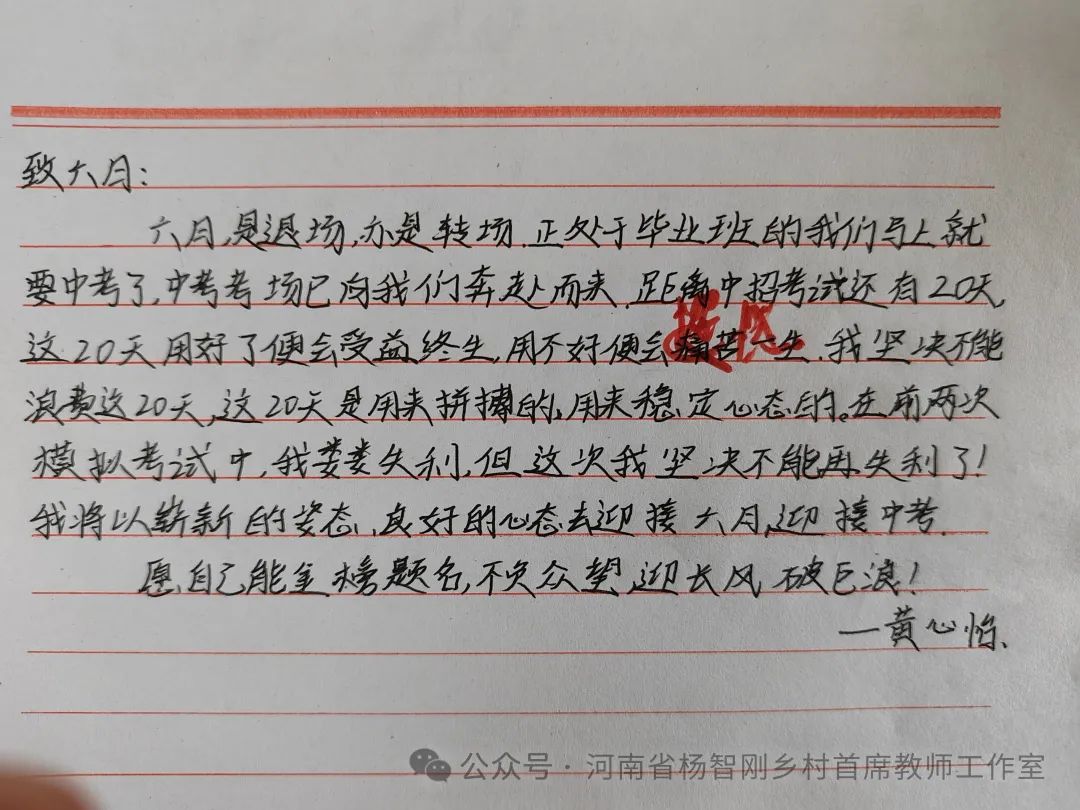 致六月：
六月，是退场，亦是转场．正处于毕业班的我们马上就
要中考了，中考考场已向我们奔赴而来．距离中招考试还有20天，
遗憾
这20天用好了便会受益终生，用不好便会痛苦一生．我坚决不能
浪费这20天，这20天是用来拼搏的，用来稳定心态的。在前两次
模拟考试中，我娄娄失利，但这次我坚决不能再失利了！
我将以崭新的姿态、良好的心态去迎接六月，迎接中考．
愿自己能金榜题名，不负众望，迎长风破巨浪！
—黄心怡、
公众号·河南省杨智刚乡村首席教师工作室